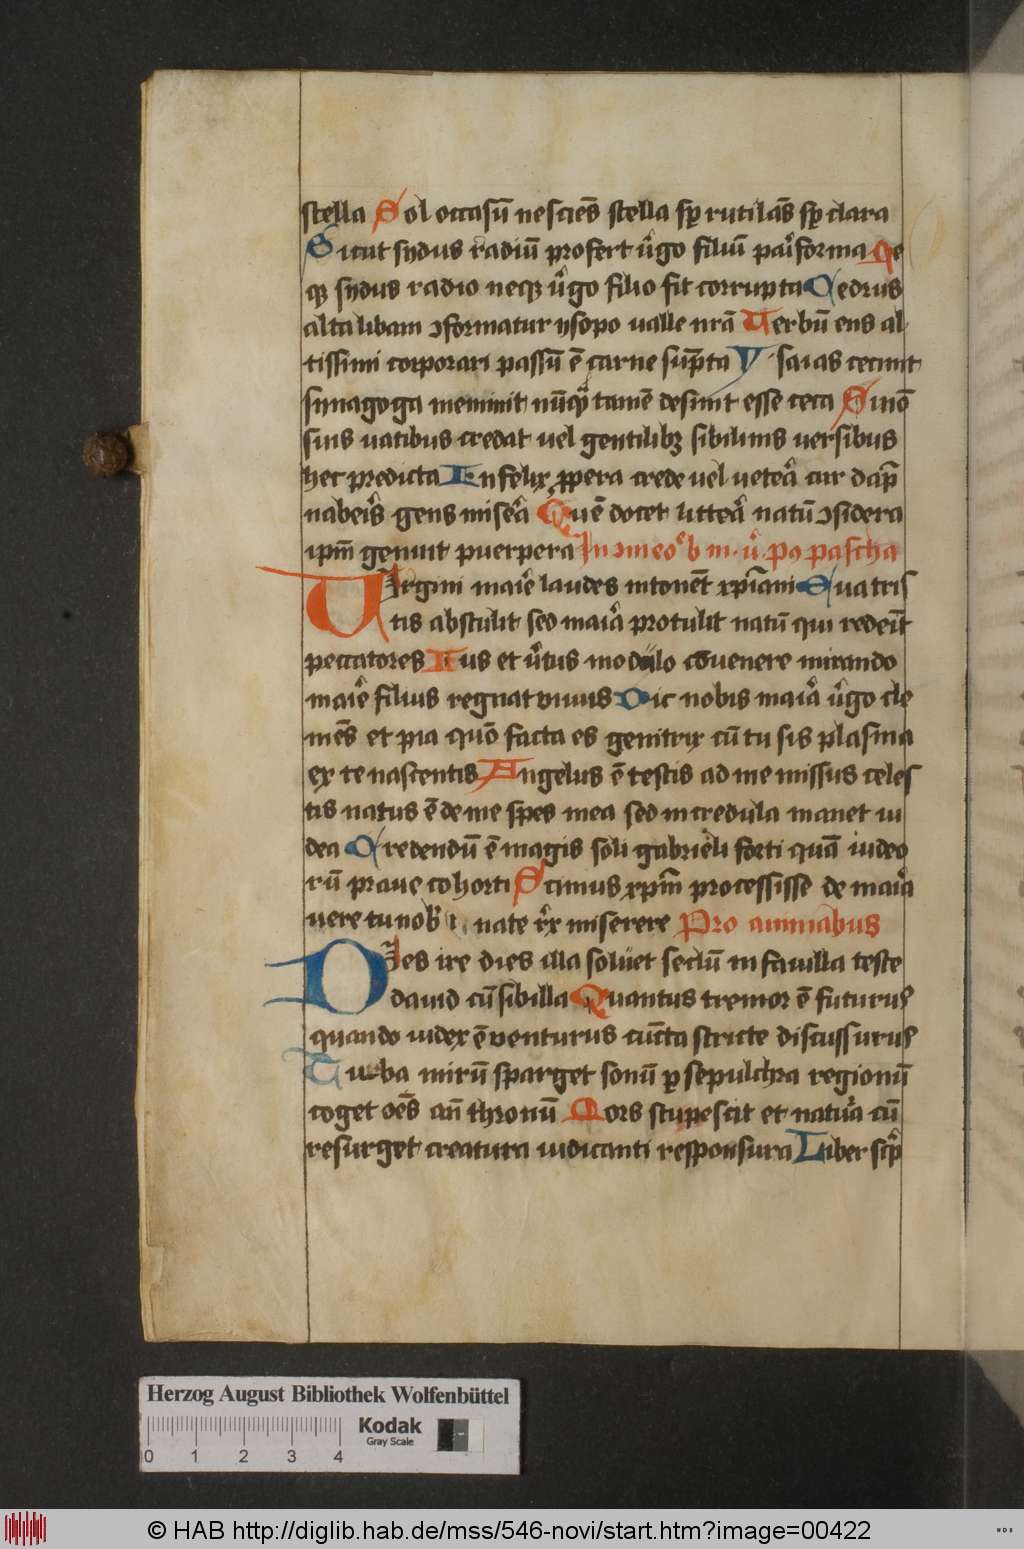 stella Sol occasū nesciēs stella sp̄ rutilās sp̄ clara
Sicut sydus radiū profert ũgo filiū paĩ forma Ne
qꝫ sydus radio neqꝫ ũgo filio fit corrupta Cedrus
alta libani ɔformatur ysopo ualle nrā Verbū ens al
tissimi corporari passū ē carne sūpta Ysaias cecinit
synagoga meminit nūqᷓ tamē desinit esse ceca Si nō
suis uatibus credat uel gentilibꝫ sibilinis uersibus
hec predicta Infelix ꝓpera crede uel ueteᷓ cur dāp
naberis gens miseᷓ Quē docet litteᷓ natū ɔsidera
ipm̄ genuit puerpera In ɔmeoᵉ b m ũ po pascha
Virgini maĩe laudes intonēt xp̄iani Eua tris
tis abstulit sed maiᷓ protulit natū qui redeīt
peccatores Mors et uĩtus modulo cōuenere mirando
maĩe filius regnat uiuus Dic nobis maiᷓ ũgo cle
mēs et pia quō facta es genitrix cū tu sis plasma
ex te nascentis Angelus ē testis ad me missus celes
tis natus ē de me spes mea sed incredula manet iu
dea Credendū ē magis soli gabrieli forti quā iudeo
rū praue cohorti Scimus xpm̄ processisse de maiᷓ
uere tu nob̄ nate rēx miserere Pro animabus
Dies ire dies illa soluet seclū in fauilla teste
dauid cū sibilla Quantus tremor ē futurus
quando iudex ē uenturus cūcta stricte discussurus
Tuba mirū sparget sonū ꝑ sepulchra regionū
coget oēs an̄ thronū Mors stupescit et natuᷓ cū
resurget creatura iudicanti responsura Liber scp̄
Herzog August Bibliothek Wolfenbüttel
Kodak
Gray Scale
0 1 2 3 4
© HAB http://diglib.hab.de/mss/546-novi/start.htm?image=00422